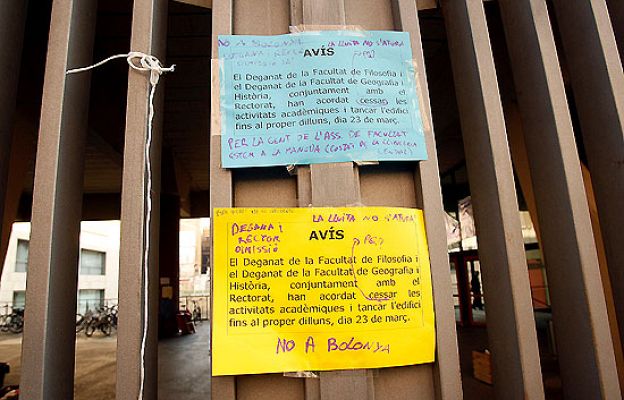 NO A BOLONYA
LA LLUITA NO S'ATURA
DEGANA I RECTOR
DIMISSIÓ JA
AVÍS
El Deganat de la Facultat de Filosofia i
el Deganat de la Facultat de Geografia i
Història, conjuntament amb el
Rectorat, han acordat cessar les
activitats acadèmiques i tancar l'edifici
fins al proper dilluns, dia 23 de març.
PER LA GENT DE L'ASS. DE FACULTAT
ESTEM A LA
LA LLUITA NO S'ATURA
DEGANA I
RECTOR
DIMISSIÓ
AVÍS
El Deganat de la Facultat de Filosofia i
el Deganat de la Facultat de Geografia i
Història, conjuntament amb el
Rectorat, han acordat cessar les
activitats acadèmiques i tancar l'edifici
fins al proper dilluns, dia 23 de març.
NO A BOLONYA